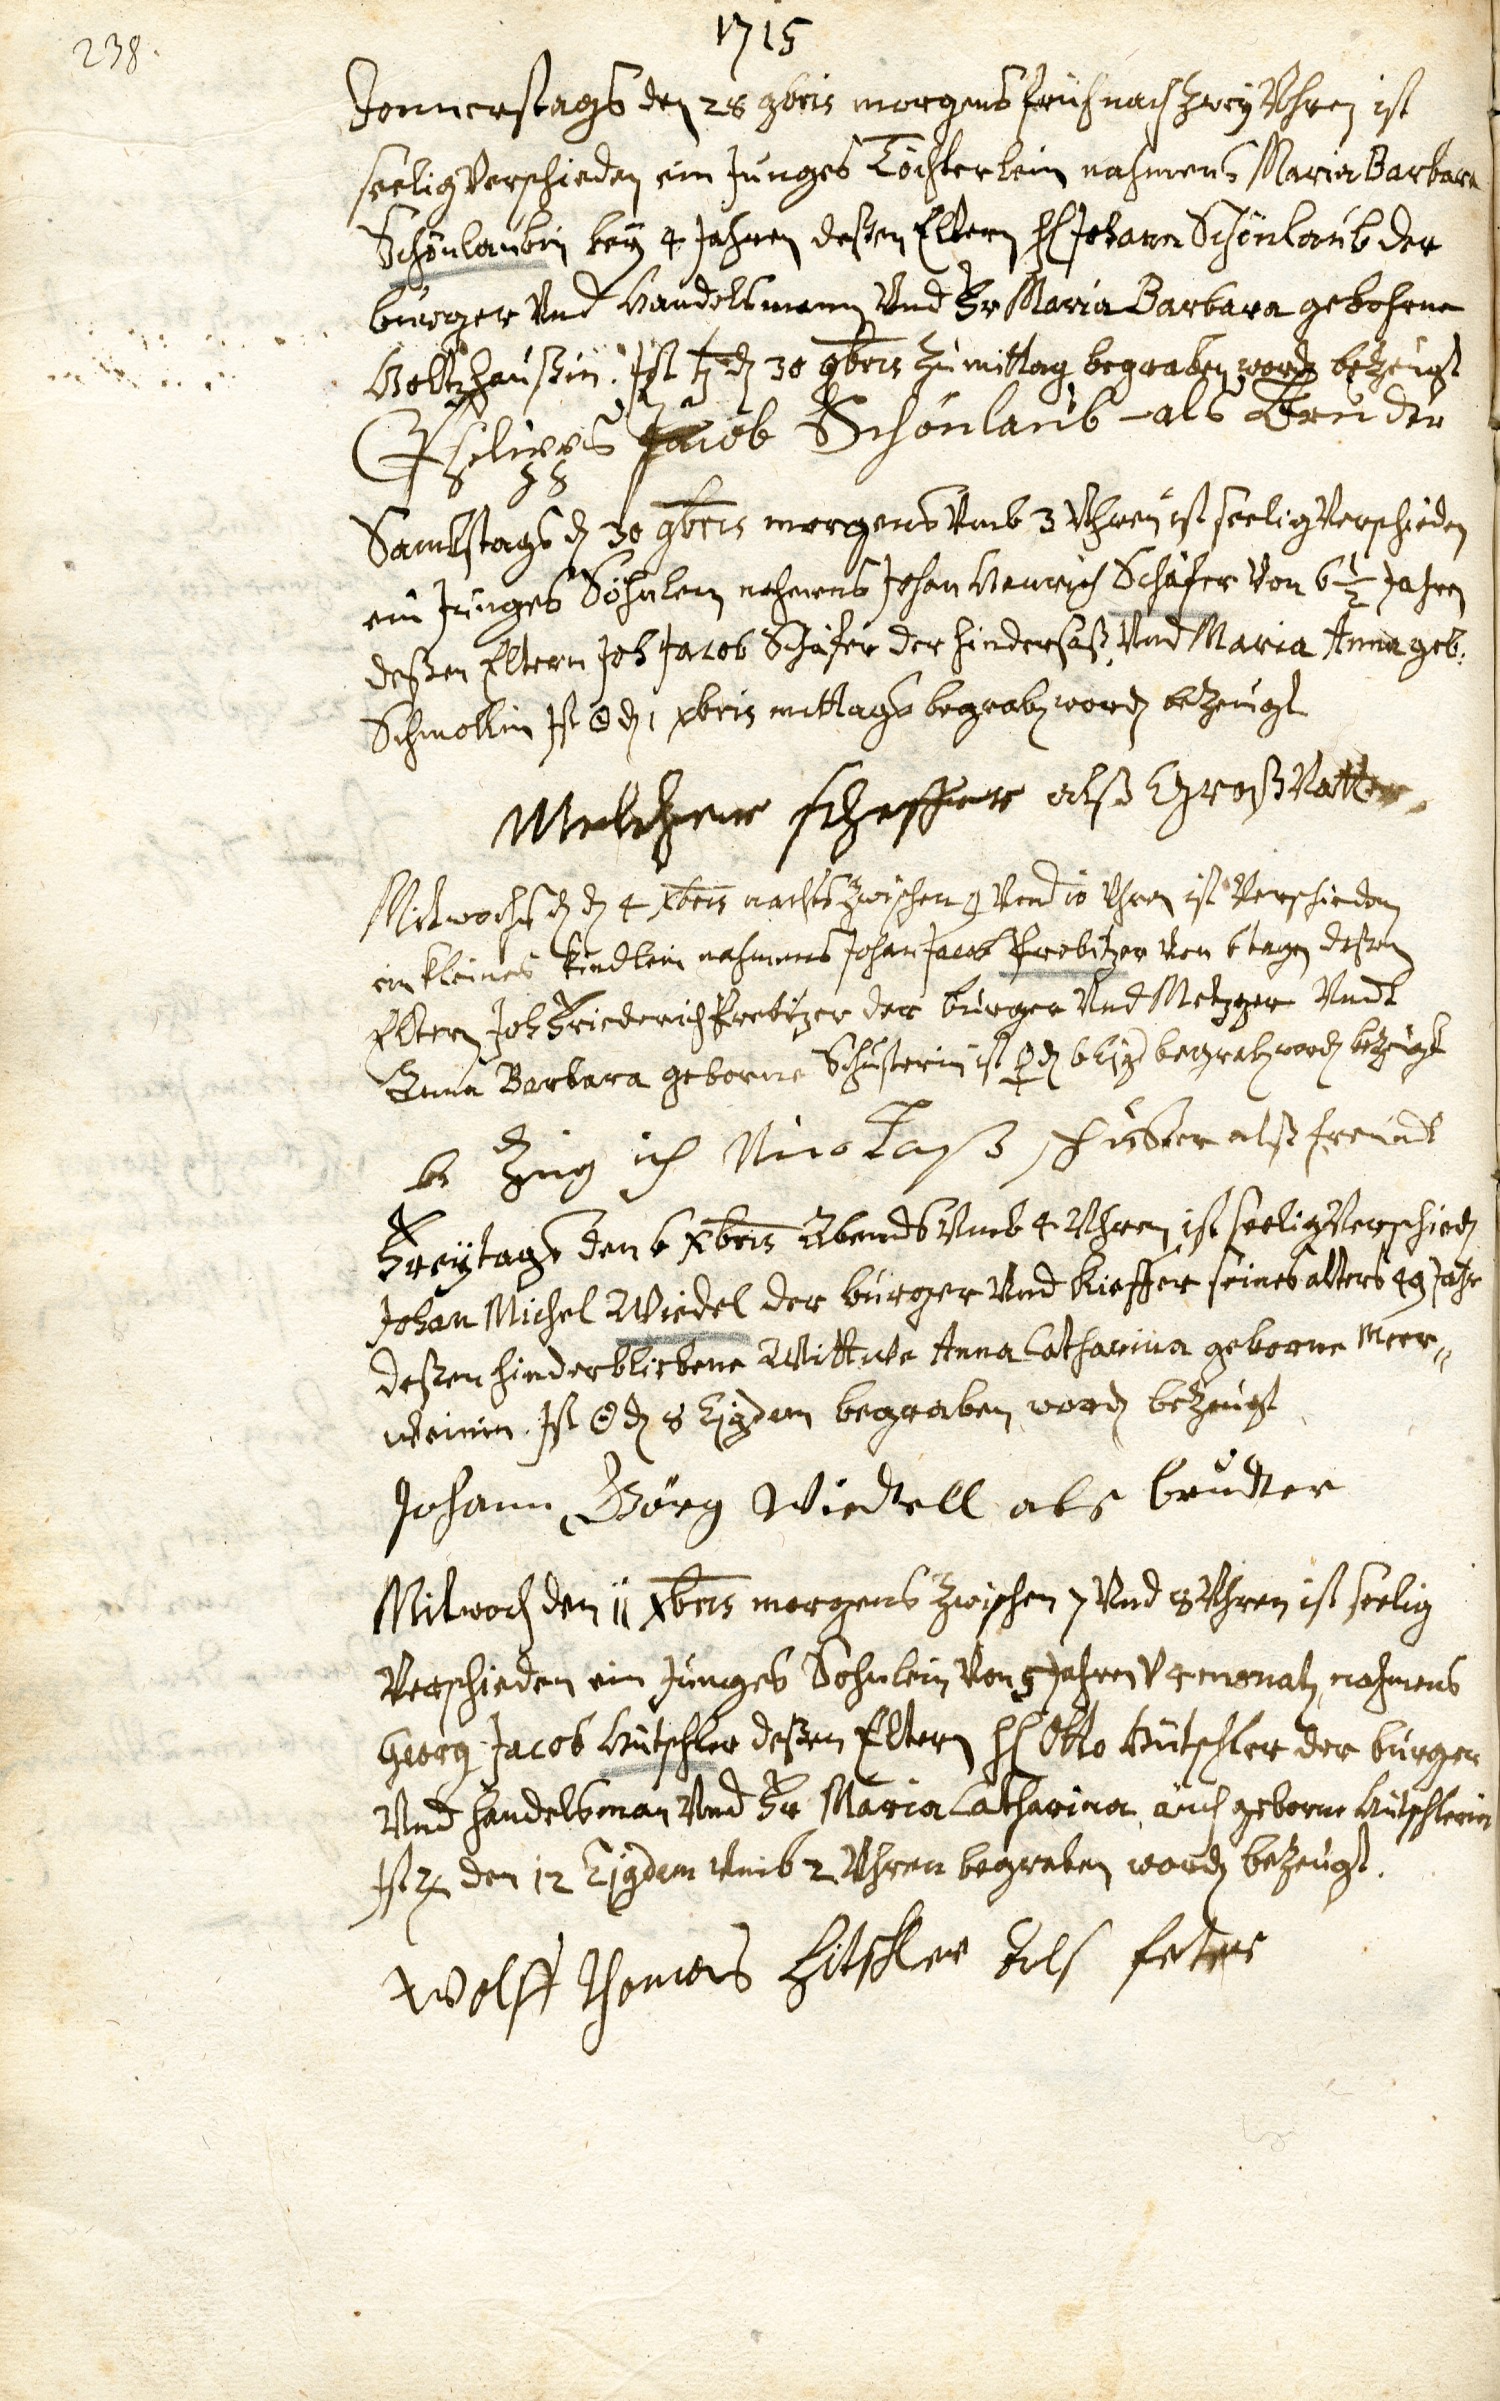 238.
1715
Donnerstags den 28 9bris morgens früh nach zwey Uhren ist
seelig Verschieden ein Junges Töchterlein nahmens Maria Barbara
Schönlaubin bey 4 Jahren deßen Eltern H Johann Schönlaub der
burger Und Handelsmann Und Fr Maria Barbara gebohrne
Holtzhaußin. Ist ♄ dn 30 9bris zu mittag begraben word bezeugt
Philipps Jacob Schönlaub als Bruder
Sambstags d 30 9bris morgens Umb 3 Uhren ist seelig Verschieden
ein Junges Söhnlein nahmens Johan Henrich Schäfer Von 6 1/2 Jahren
deßen Eltern Joh Jacob Schäfer der hindersaß Und Maria Anna geb:
Schmollin Ist ☉ d 1 Xbris mittags begrab word bezeugt
Melchger scheffer alß Großvatter
Mitwochs d d 4 Xbris nachts zwischen 9 Und 10 Uhren ist Verschieden
ein kleines Kindlein nahmens Johan Jacob Prebitzer Von 6 tagen deßen
Eltern Joh Friederich Prebitzer der burger Und Metzger Undt
Anna Barbara geborne Schusterin ist ♀ d 6 begrab word bezeugt
be Zeug ich Nicolaß schuster alß freindt
Freytags den 6 Xbris Abends Umb 4 Uhren ist seelig Verschied
Johan Michel Wiedel der burger Und Kieffer seines alters 49 Jahr
deßen hinderbliebene Wittwe Anna Catharina geborne Meer„
weinin. Ist ☉ d 8 Ejusdem begraben word bezeugt
Johann Görg Wiedell als bruder
Mitwoch den 11 Xbris morgens zwischen 7 Und 8 Uhren ist seelig
Verschieden ein Junges Sohnlein Von 5 Jahren V monatz nahmens
Georg Jacob Hütschler deßen Eltern H Otto Hütschler der burger
Und handelsman Und Fr Maria Catharina auch geborne Hütschlerin
Ist ♃ den 12 Ejusdem Umb 2 Uhren begraben word bezeugt.
Wolff Thomas Hitschler Als feter